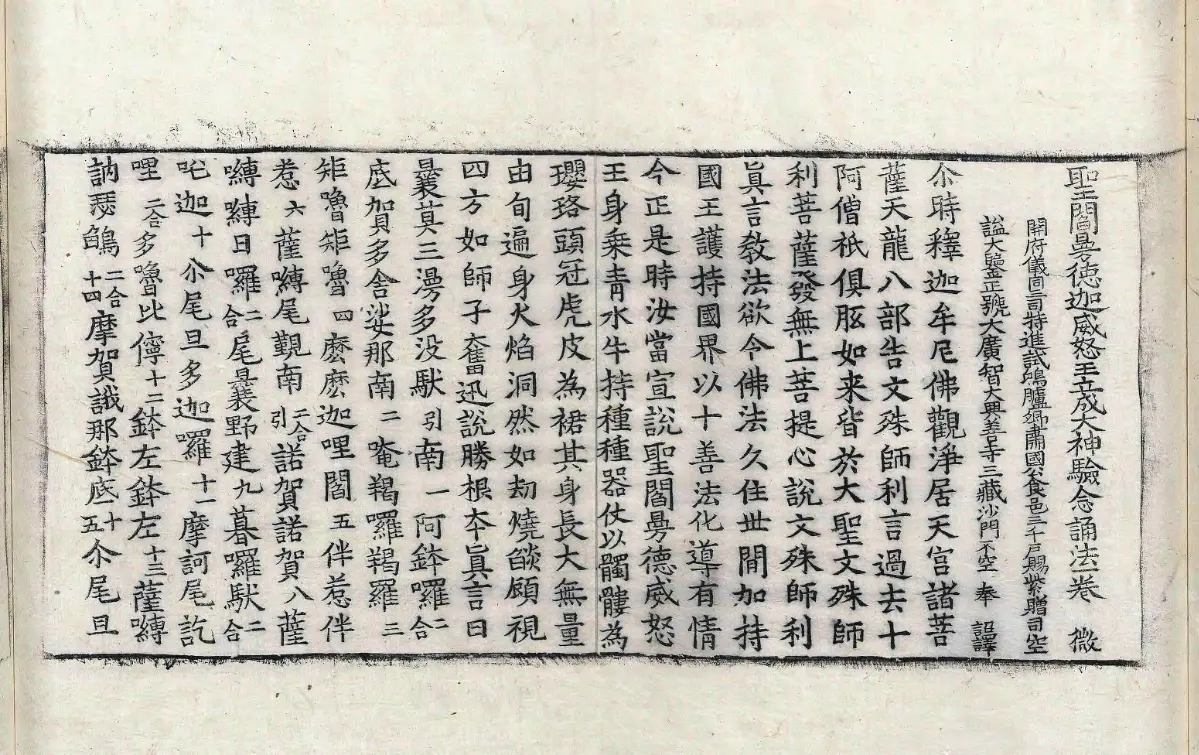 聖閻曼德迦威怒王立成大神驗念誦法卷　微
開府儀同三司特進試鴻臚卿肅國公食邑三千戶賜紫贈司空
謚大鑒正號大廣智大興善寺三藏沙門不空　奉　詔譯
尒時釋迦牟尼佛觀淨居天宮諸菩
薩天龍八部告文殊師利言過去十
阿僧祇俱胝如来皆於大聖文殊師
利菩薩發無上菩提心說文殊師利
眞言教法欲令佛法久住世間加持
國王護持國界以十善法化導有情
今正是時汝當宣說聖閻曼德威怒
王身乗青水牛持種種器仗以髑髏為
瓔珞頭冠虎皮為裙其身長大無量
由旬遍身火焰洞然如劫燒焰顧視
四方如師子奮迅說勝根本眞言曰
曩莫三漫多没馱引南一阿鉢囉二合
底賀多舍娑那南二唵羯囉羯囉三
矩嚕矩嚕四麼麼迦哩閻五伴惹伴
惹六薩嚩尾覲南二合引諾賀諾賀八薩
嚩嚩日囉二合尾曩野建九暮囉馱二合
吒迦十尒尾旦多迦囉十一摩訶尾訖
哩二合多嚕比儜十二鉢左鉢左十三薩嚩
訥瑟鵮二合十四摩賀誐那鉢底十五尒尾旦